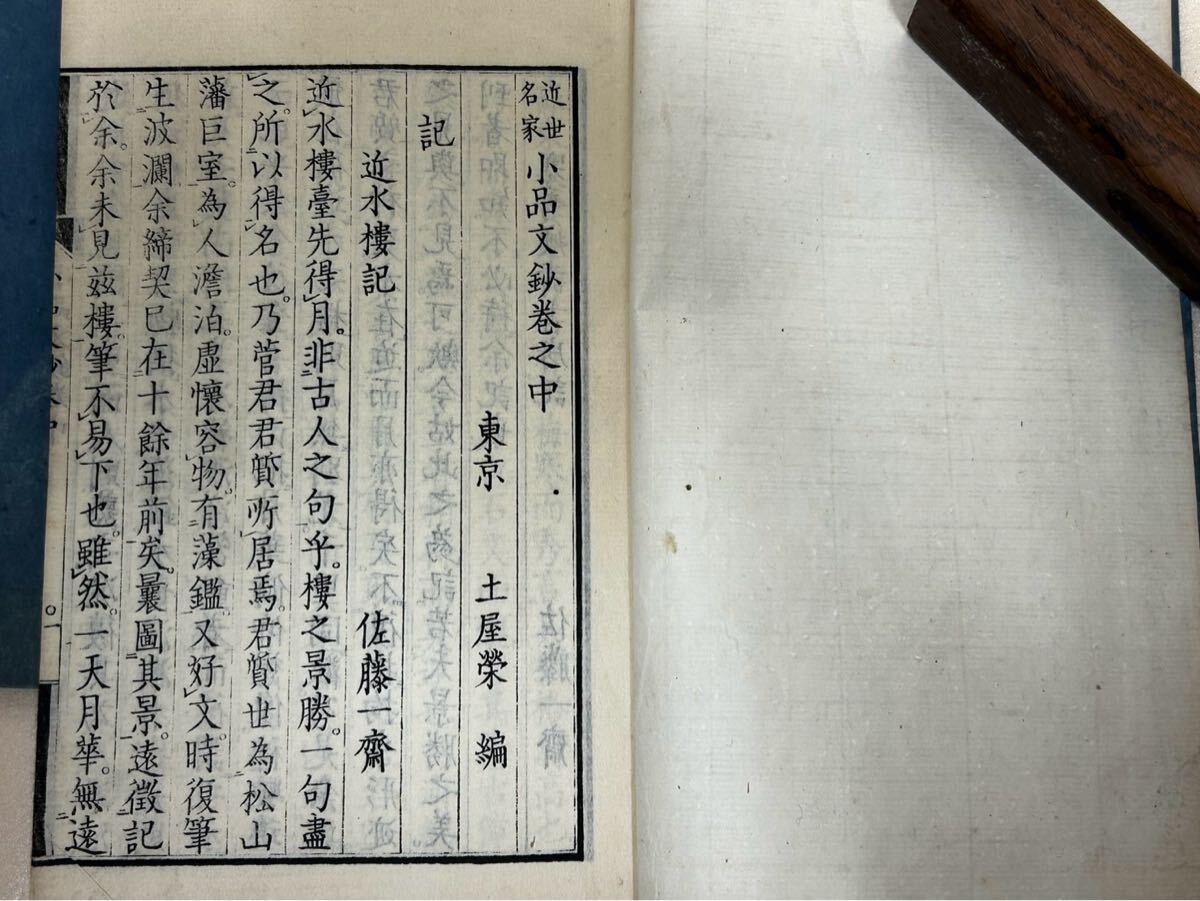 近世名家小品文鈔卷之中
東京 土屋榮 編
記
近水樓記 佐藤一齋
近水樓臺先得月。非古人之句乎。樓之景勝。一句盡
之。所以得名也。乃菅君君質所居焉。君質世為松山
藩巨室。為人澹泊。虛懷容物。有藻鑑。又好文。時復筆
生波瀾余締契已在十餘年前矣。曩圖其景。遠徵記
於余。余未見茲樓。筆不易下也。雖然。一天月華。無遠